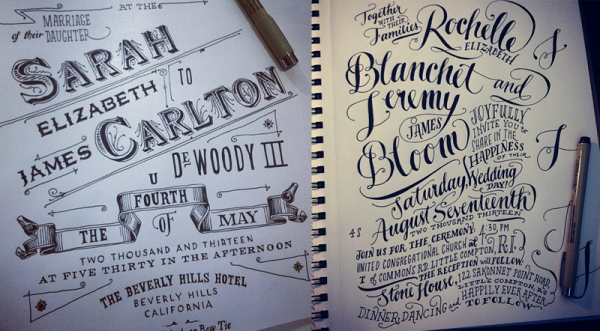 AT THE
MARRIAGE
of their DAUGHTER
SARAH
ELIZABETH TO
JAMES CARLTON
DEWOODY III
U
FOURTH
THE OF MAY
TWO THOUSAND AND THIRTEEN
AT FIVE THIRTY IN THE AFTERNOON
THE BEVERLY HILLS HOTEL
BEVERLY HILLS
CALIFORNIA
Bow Tie
Together
WITH THEIR
Families
Rochelle
ELIZABETH
Blanchet and
Jeremy
JAMES
Bloom
JOYFULLY
INVITE YOU to
SHARE IN THE
HAPPINESS
OF THEIR
Wedding
DAY!
Saturday
August Seventeenth
TWO THOUSAND THIRTEEN
JOIN US FOR THE CEREMONY: 4:30 PM
UNITED CONGREGATIONAL CHURCH at
1 of COMMONS RD. LITTLE COMPTON, R.I.
THE RECEPTION will FOLLOW:
Stone House, 122 SAKONNET POINT ROAD,
LITTLE COMPTON, RI
DINNER, DANCING and
HAPPILY EVER AFTER
TO FOLLOW